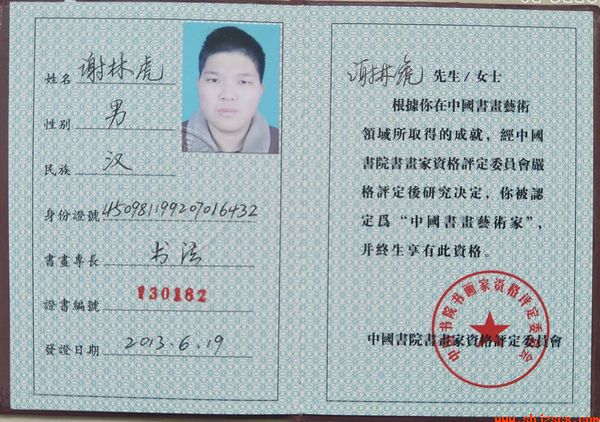 姓名 谢林虎
性别 男
民族 汉
身份證號 450981199207016432
書畫專長 书法
證書編號 130182
發證日期 2013.6.19
谢林虎 先生/女士
根據你在中國書畫藝術
領域所取得的成就，經中國
書院書畫家資格評定委員會嚴
格評定後研究決定，你被認
定爲“中國書畫藝術家”，
并終生享有此資格。
中國書院書畫家資格評定委員會
中国书院书画家资格评定委员会